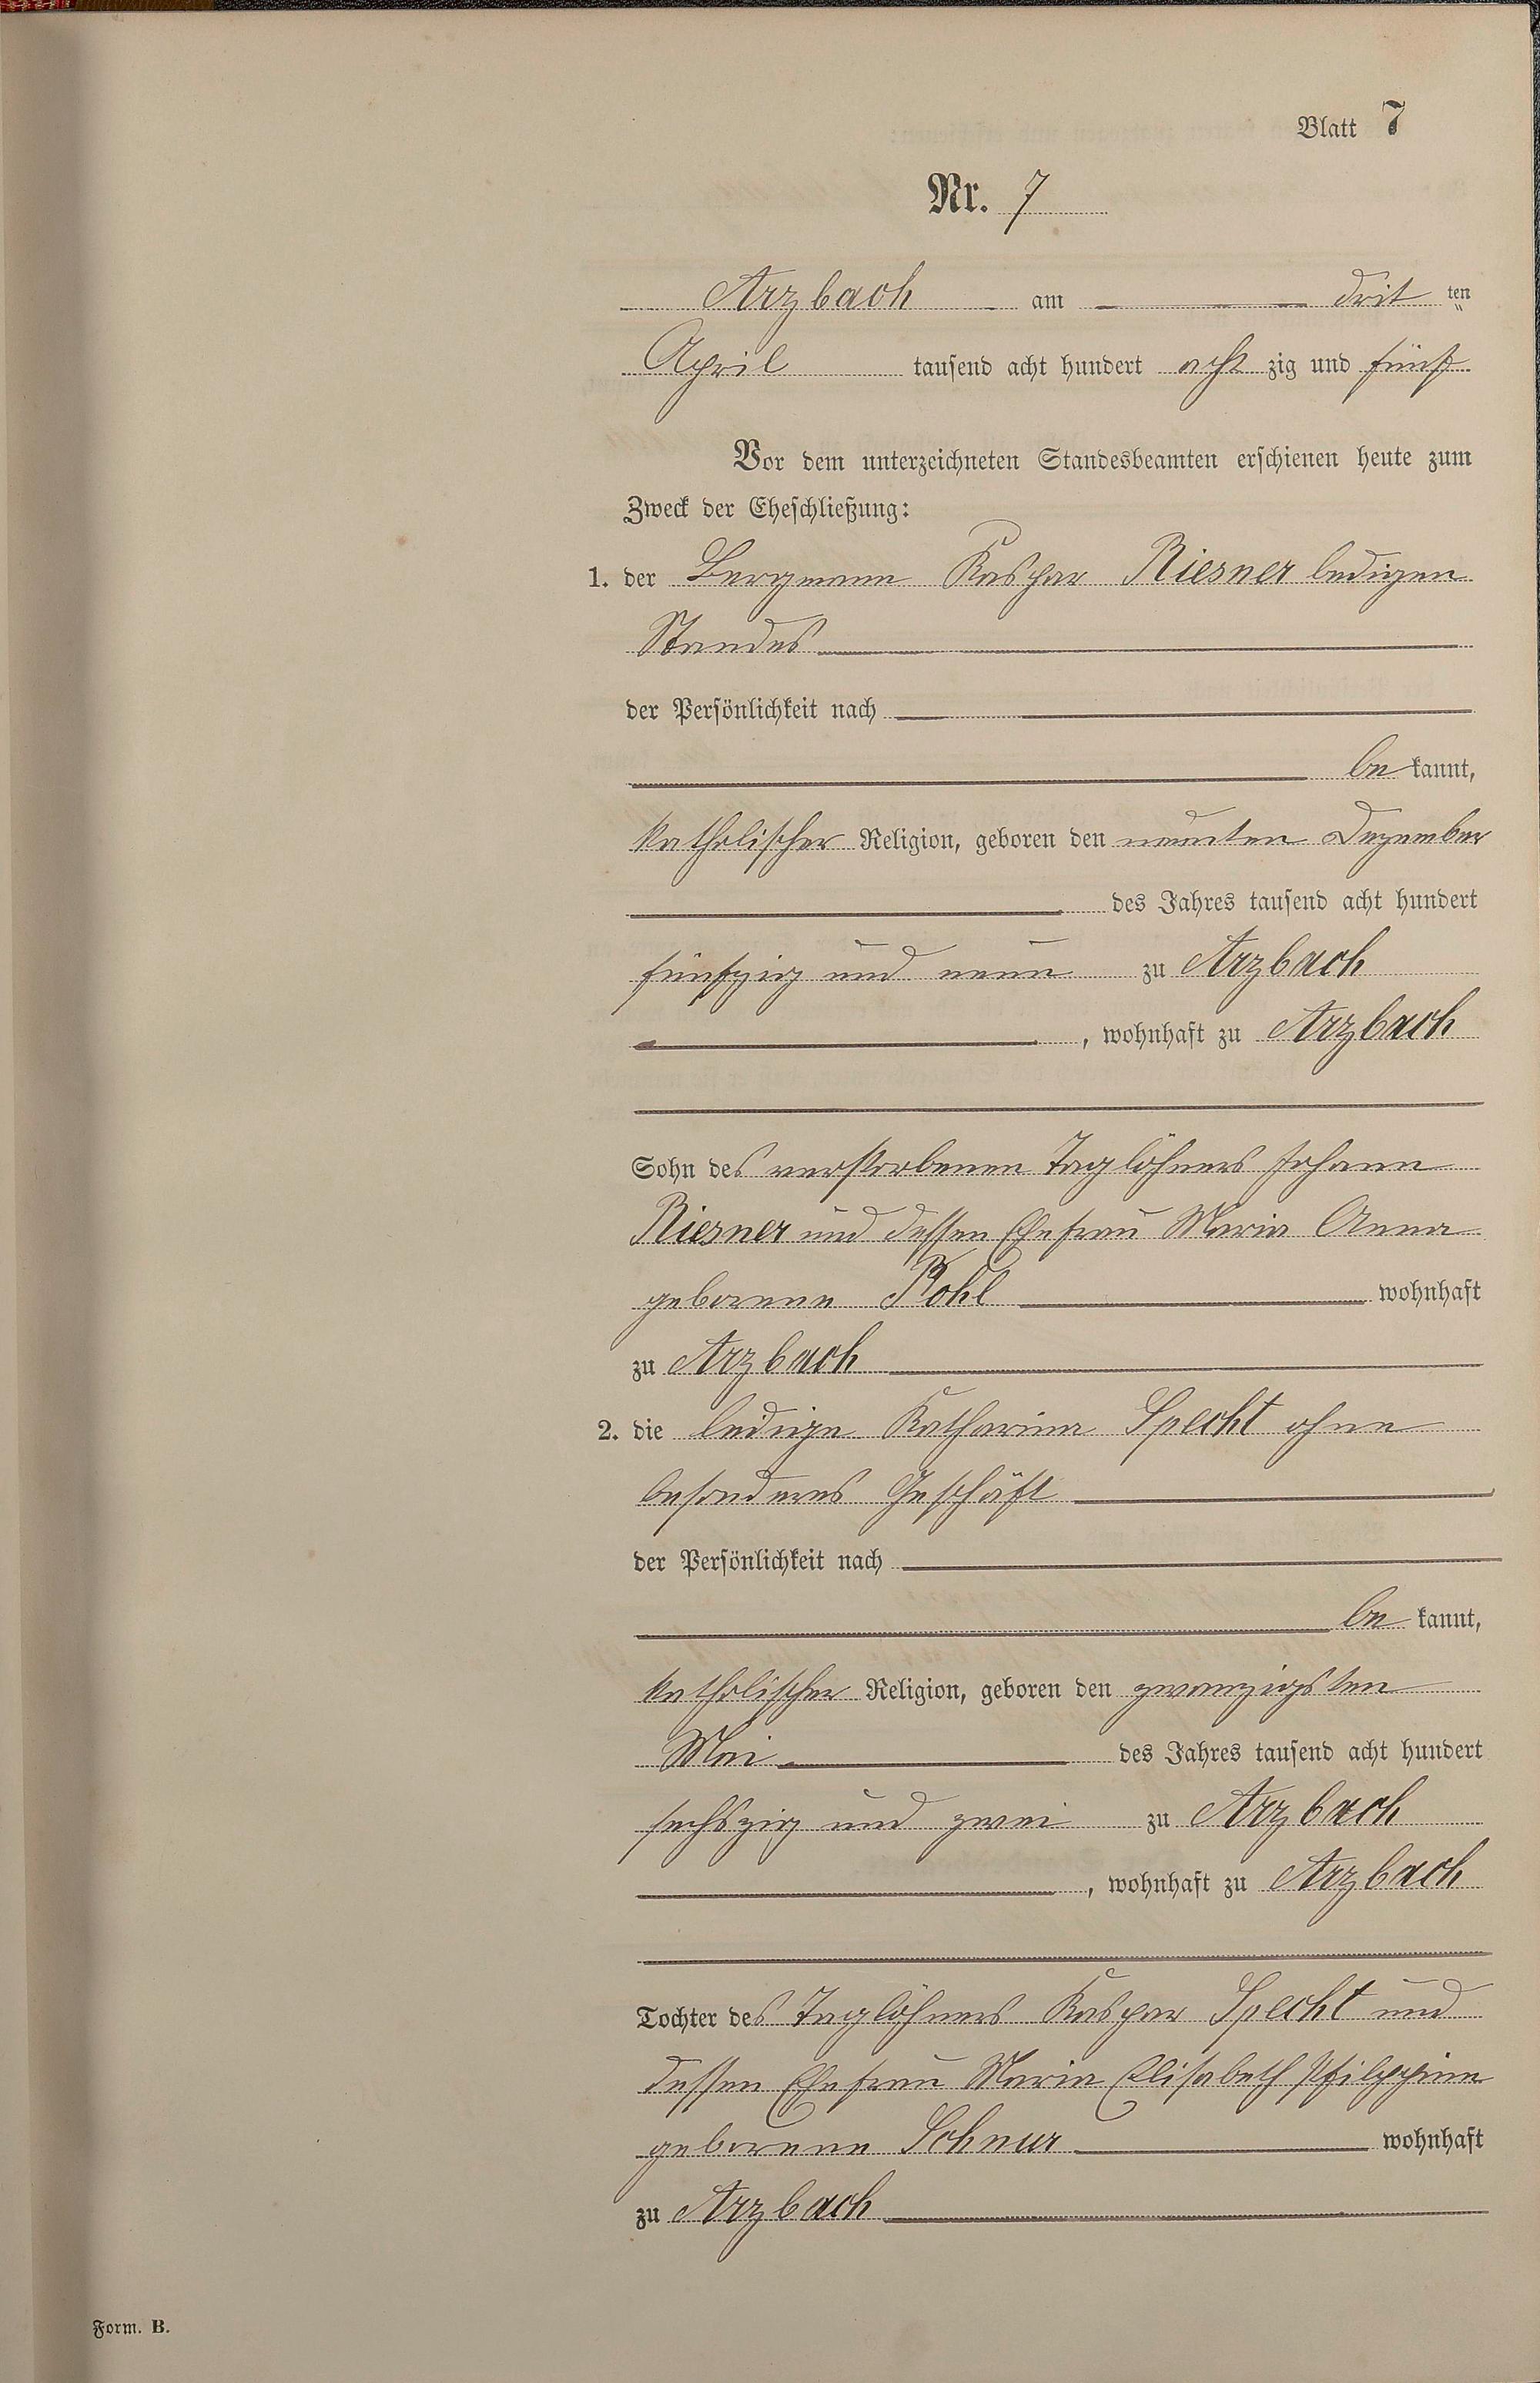 Blatt 7
Nr. 7
Arzbach am drit ten
April tausend acht hundert acht zig und fünf
Vor dem unterzeichneten Standesbeamten erschienen heute zum
Zweck der Eheschließung:
1. der Bergmann Kaspar Riesner ledigen
Standes
der Persönlichkeit nach
be kannt,
katholischer Religion, geboren den neunten Dezember
des Jahres tausend acht hundert
fünfzig und neun zu Arzbach
, wohnhaft zu Arzbach
Sohn des verstorbenen Taglöhners Johann
Riesner und dessen Ehefrau Maria Anna
geborene Pohl wohnhaft
zu Arzbach
2. die ledige Katharina Specht ohne
besonderes Geschäft
der Persönlichkeit nach
be kannt,
katholischer Religion, geboren den zwanzigsten
Mai des Jahres tausend acht hundert
sechszig und zwei zu Arzbach
, wohnhaft zu Arzbach
Tochter des Taglöhners Kaspar Specht und
dessen Ehefrau Maria Elisabeth Philippine
geborene Schnur wohnhaft
zu Arzbach
Form. B.